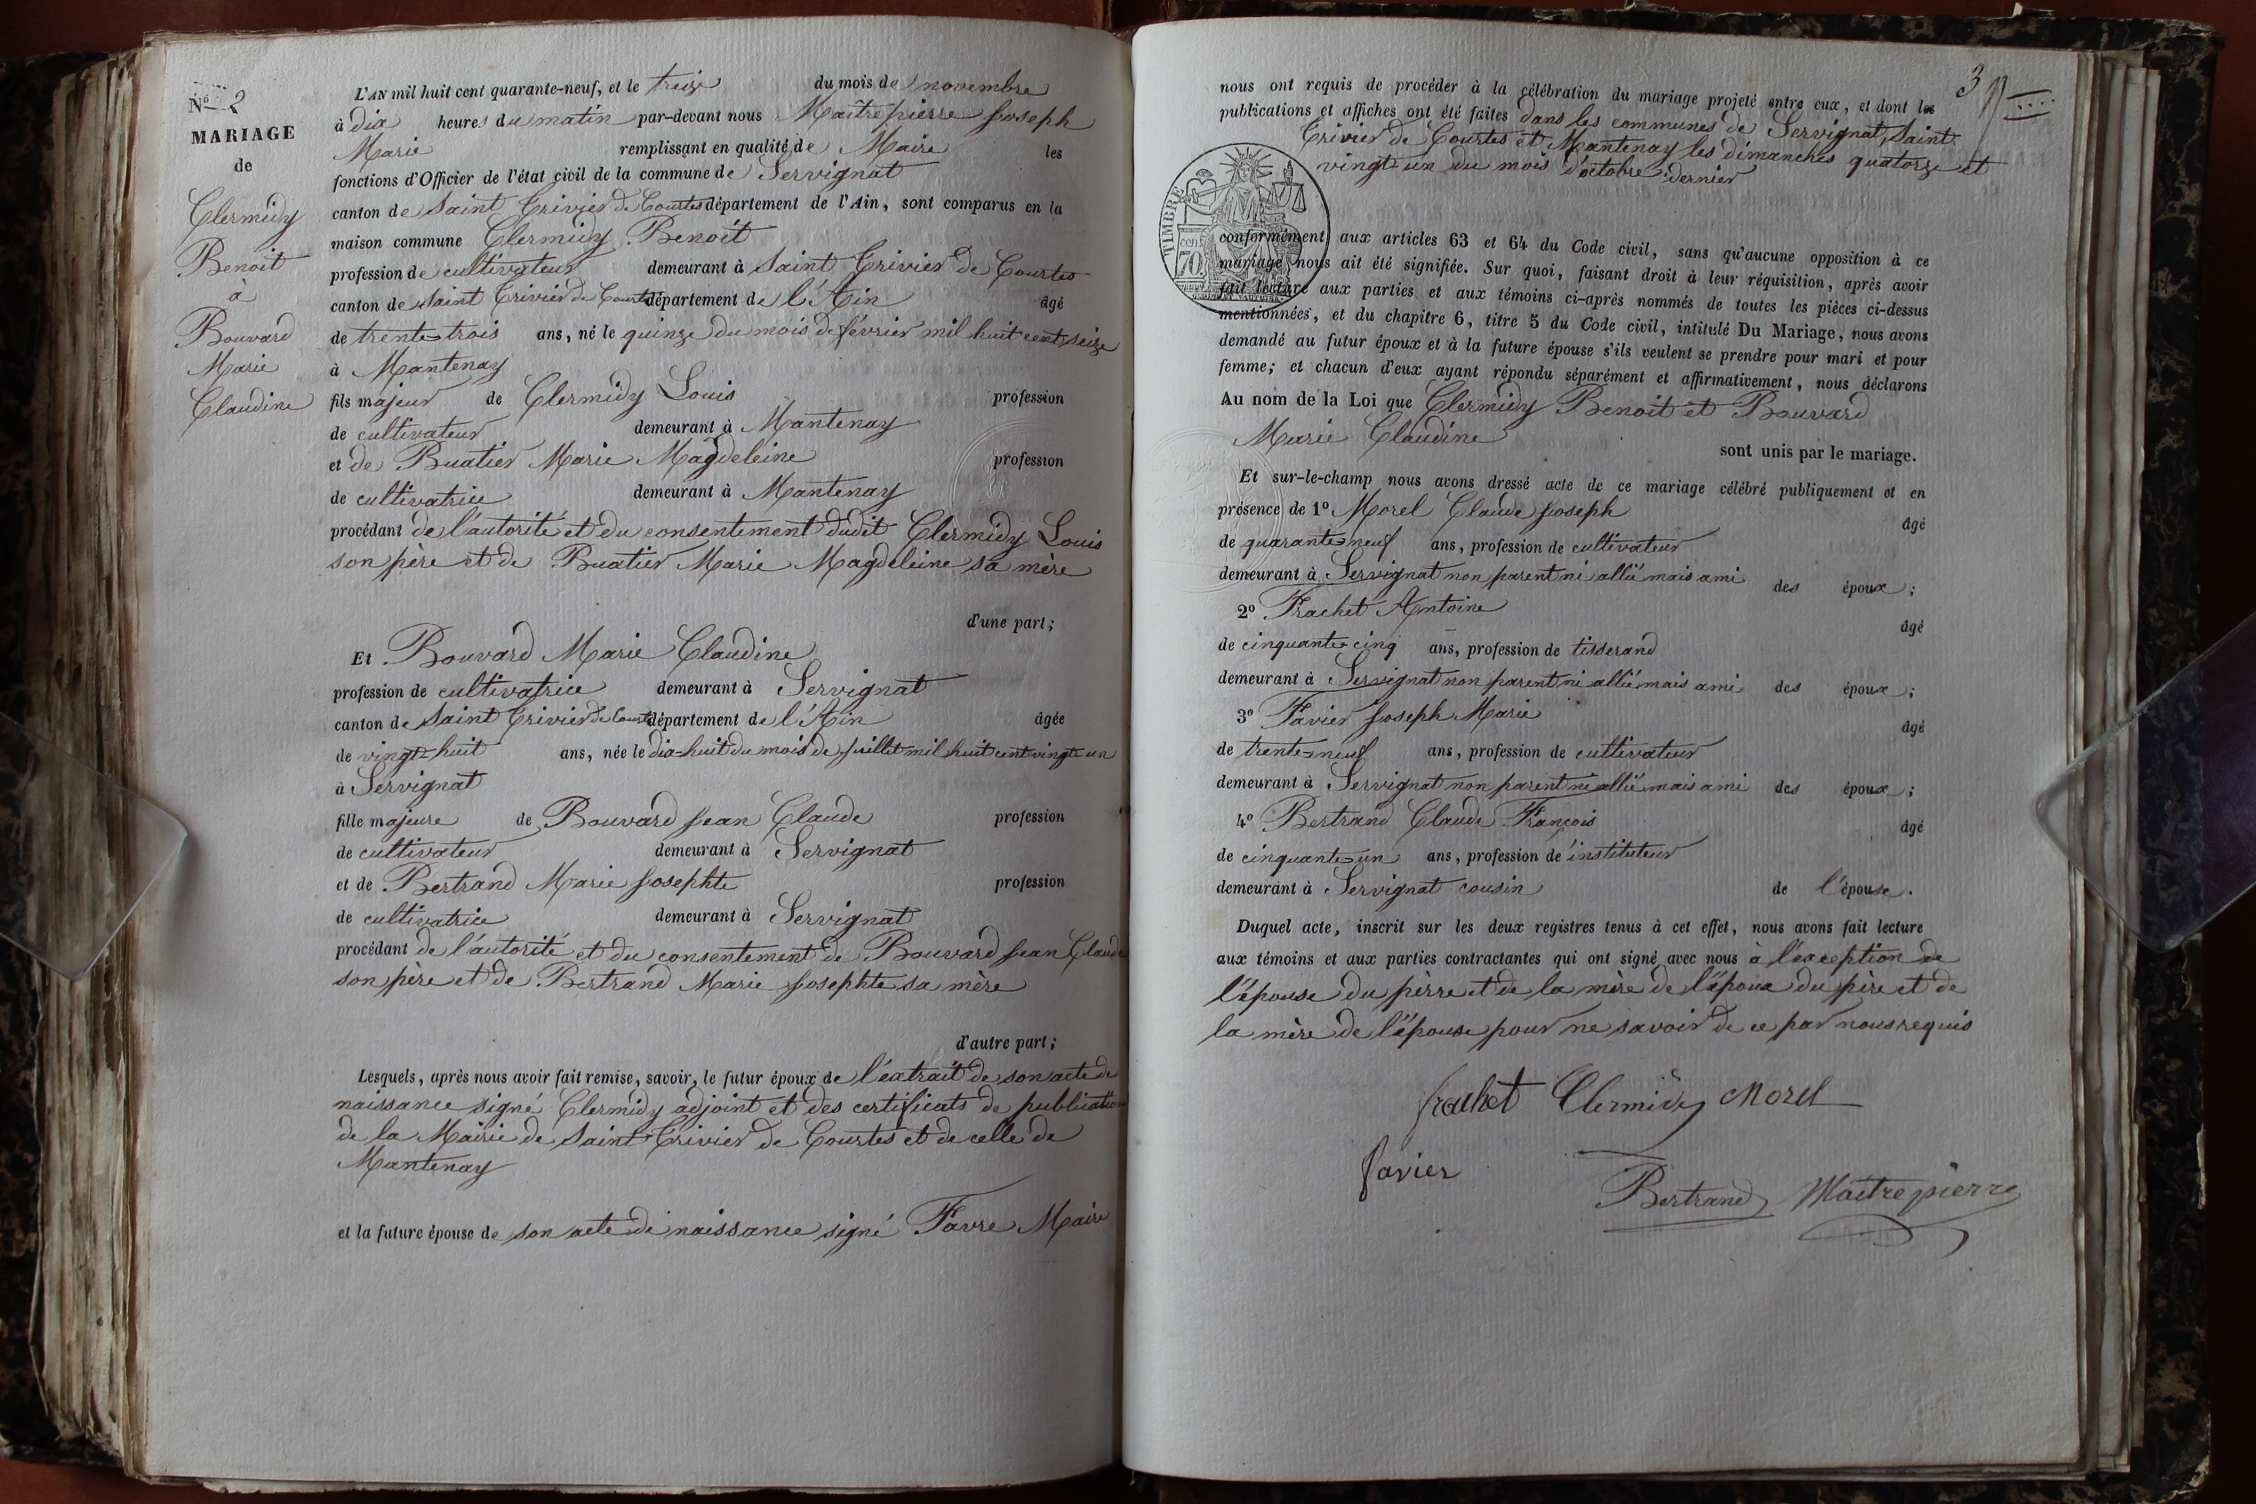 Nº 2
MARIAGE
de
Clermidy
Benoit
à
Bouvard
Marie
Claudine
L'AN mil huit cent quarante-neuf, et le treize du mois de novembre
à dix heures du matin par-devant nous Maitrepierre Joseph
Marie remplissant en qualité de Maire les
fonctions d'Officier de l'état civil de la commune de Servignat
canton de Saint Trivier de Courtes département de l'Ain, sont comparus en la
maison commune Clermidy Benoit
profession de cultivateur demeurant à Saint Trivier de Courtes
canton de Saint Trivier de Courtes département de l'Ain âgé
de trente-trois ans, né le quinze du mois de février mil huit cent seize
à Mantenay
fils majeur de Clermidy Louis profession
de cultivateur demeurant à Mantenay
et de Buatier Marie Magdeleine profession
de cultivatrice demeurant à Mantenay
procédant de l'autorité et du consentement dudit Clermidy Louis
son père et de Buatier Marie Magdeleine sa mère
d'une part;
Et Bouvard Marie Claudine
profession de cultivatrice demeurant à Servignat
canton de Saint Trivier de Courtes département de l'Ain âgée
de vingt-huit ans, née le dix-huit du mois de Juillet mil huit cent vingt un
à Servignat
fille majeure de Bouvard Jean Claude profession
de cultivateur demeurant à Servignat
et de Bertrand Marie Josephte profession
de cultivatrice demeurant à Servignat
procédant de l'autorité et du consentement de Bouvard Jean Claude
son père et de Bertrand Marie Josephte sa mère
d'autre part;
Lesquels, après nous avoir fait remise, savoir, le futur époux de l'extrait de son acte de
naissance signé Clermidy adjoint et des certificats de publication
de la Mairie de Saint Trivier de Courtes et de celle de
Mantenay
et la future épouse de son acte de naissance signé Favre Maire
3
nous ont requis de procéder à la célébration du mariage projeté entre eux, et dont les
publications et affiches ont été faites dans les communes de Servignat, Saint
Trivier de Courtes et Mantenay les dimanches quatorze et
vingt-un du mois d'octobre dernier
TIMBRE
cent.
70
conformément aux articles 63 et 64 du Code civil, sans qu'aucune opposition à ce
mariage nous ait été signifiée. Sur quoi, faisant droit à leur réquisition, après avoir
fait lecture aux parties et aux témoins ci-après nommés de toutes les pièces ci-dessus
mentionnées, et du chapitre 6, titre 5 du Code civil, intitulé Du Mariage, nous avons
demandé au futur époux et à la future épouse s'ils veulent se prendre pour mari et pour
femme; et chacun d'eux ayant répondu séparément et affirmativement, nous déclarons
Au nom de la Loi que Clermidy Benoit et Bouvard
Marie Claudine
sont unis par le mariage.
Et sur-le-champ nous avons dressé acte de ce mariage célébré publiquement et en
présence de 1º Morel Claude Joseph âgé
de quarante-neuf ans, profession de cultivateur
demeurant à Servignat non parent ni allié mais ami des époux;
2º Frachet Antoine âgé
de cinquante-cinq ans, profession de tisserand
demeurant à Servignat non parent ni allié mais ami des époux;
3º Favier Joseph Marie âgé
de trente-neuf ans, profession de cultivateur
demeurant à Servignat non parent ni allié mais ami des époux;
4º Bertrand Claude François âgé
de cinquante-un ans, profession de instituteur
demeurant à Servignat cousin de l'épouse.
Duquel acte, inscrit sur les deux registres tenus à cet effet, nous avons fait lecture
aux témoins et aux parties contractantes qui ont signé avec nous à l'exception de
l'épouse du pèrre et de la mère de l'époux du père et de
la mère de l'épouse pour ne savoir de ce par nous requis
frachet Clermidy Morel
favier
Bertrand Maitrepierre